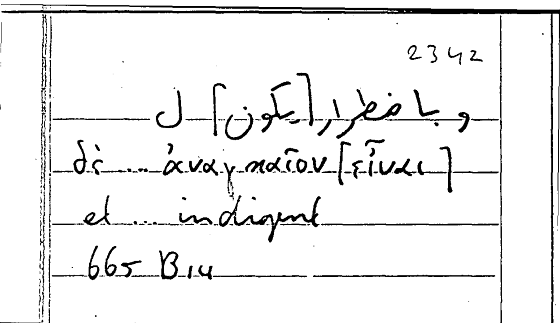 2342
و باضطرار [يكون] ل
δὲ ... ἀναγκαῖον [εἶναι]
et ... indigent
665 B 14